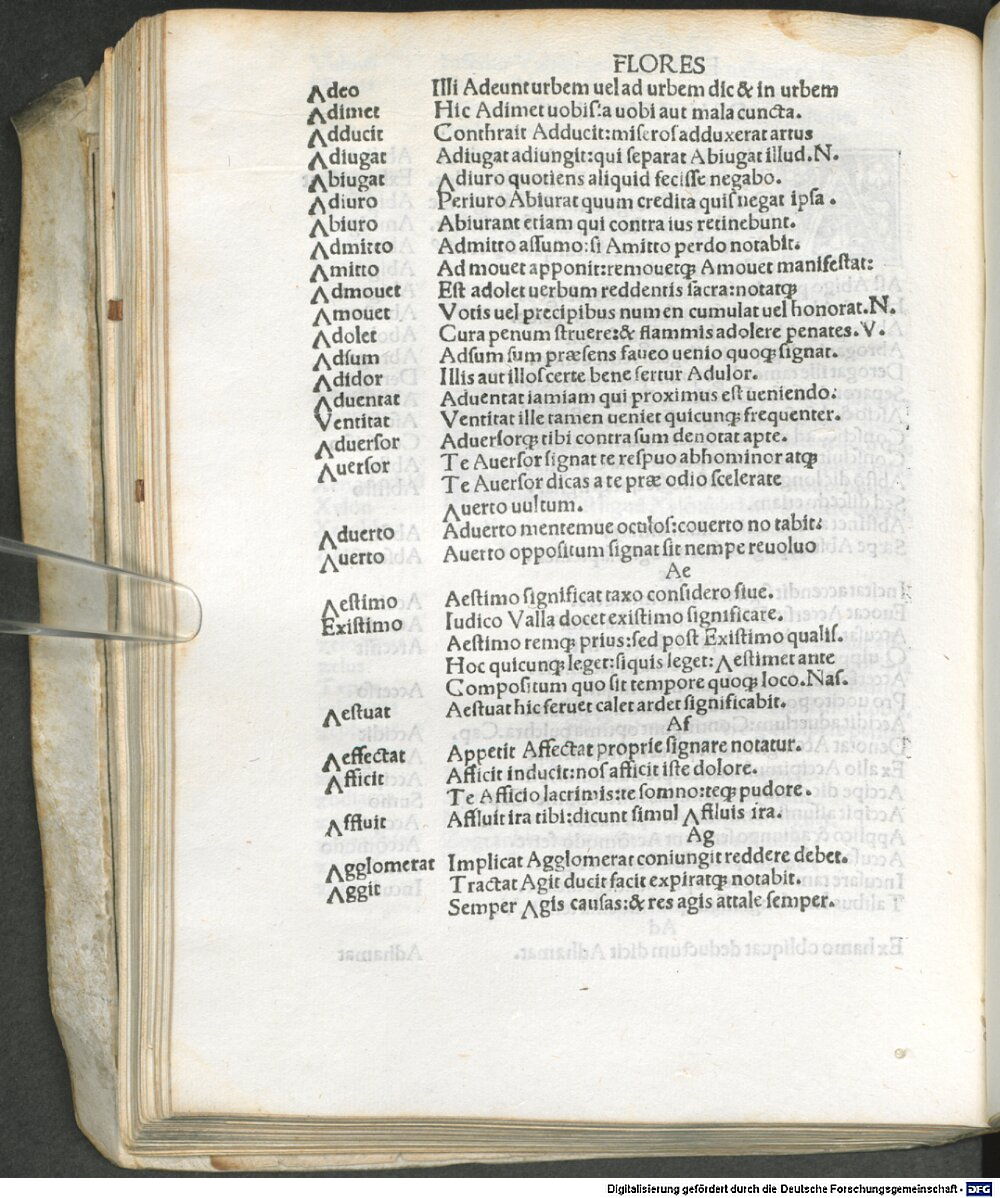 FLORES
Adeo Illi Adeunt urbem uel ad urbem dic & in urbem
Adimet Hic Adimet uobis:a uobi aut mala cuncta.
Adducit Conthrait Adducit:miſeroſ adduxerat artus
Adiugat Adiugat adiungit:qui ſeparat Abiugat illud.N.
Abiugat Adiuro quotiens aliquid feciſſe negabo.
Adiuro Periuro Abiurat quum credita quiſ negat ipſa.
Abiuro Abiurant etiam qui contra ius retinebunt.
Admitto Admitto aſſumo:ſi Amitto perdo notabit.
Amitto Ad mouet apponit:remouetqꝫ Amouet manifeſtat:
Admouet Eſt adolet uerbum reddentis ſacra:notatqꝫ
Amouet Votis uel precipibus numen cumulat uel honorat.N.
Adolet Cura penum ſtruere:& flammis adolere penates.V.
Adſum Adſum ſum præſens faueo uenio quoqꝫ ſignat.
Adidor Illis aut illoſ certe bene fertur Adulor.
Aduentat Aduentat iamiam qui proximus eſt ueniendo:
Ventitat Ventitat ille tamen ueniet quicunqꝫ frequenter.
Aduerſor Aduerſorqꝫ tibi contra ſum denotat apte.
Auerſor Te Auerſor ſignat te reſpuo abhominor atqꝫ
Te Auerſor dicas a te præ odio ſcelerate
Auerto uultum.
Aduerto Aduerto mentemue oculoſ:couerto no tabit:
Auerto Auerto oppoſitum ſignat ſit nempe reuoluo
Ae
Aeſtimo Aeſtimo ſignificat taxo conſidero ſiue.
Exiſtimo Iudico Valla docet exiſtimo ſignificate.
Aeſtimo remqꝫ prius:ſed poſt Exiſtimo qualiſ.
Hoc quicunqꝫ leget:ſiquis leget:Aeſtimet ante
Compoſitum quo ſit tempore quoqꝫ loco.Naſ.
Aeſtuat Aeſtuat hic feruet calet ardet ſignificabit.
Af
Aeffectat Appetit Affectat proprie ſignare notatur.
Afficit Afficit inducit:noſ afficit iſte dolore.
Te Afficio lacrimis:te ſomno:teqꝫ pudore.
Affluit Affluit ira tibi:dicunt ſimul Affluis ira.
Ag
Agglomerat Implicat Agglomerat coniungit reddere debet.
Aggit Tractat Agit ducit facit expiratqꝫ notabit.
Semper Agis cauſas:& res agis attale ſemper.
Digitalisierung gefördert durch die Deutsche Forschungsgemeinschaft - DFG